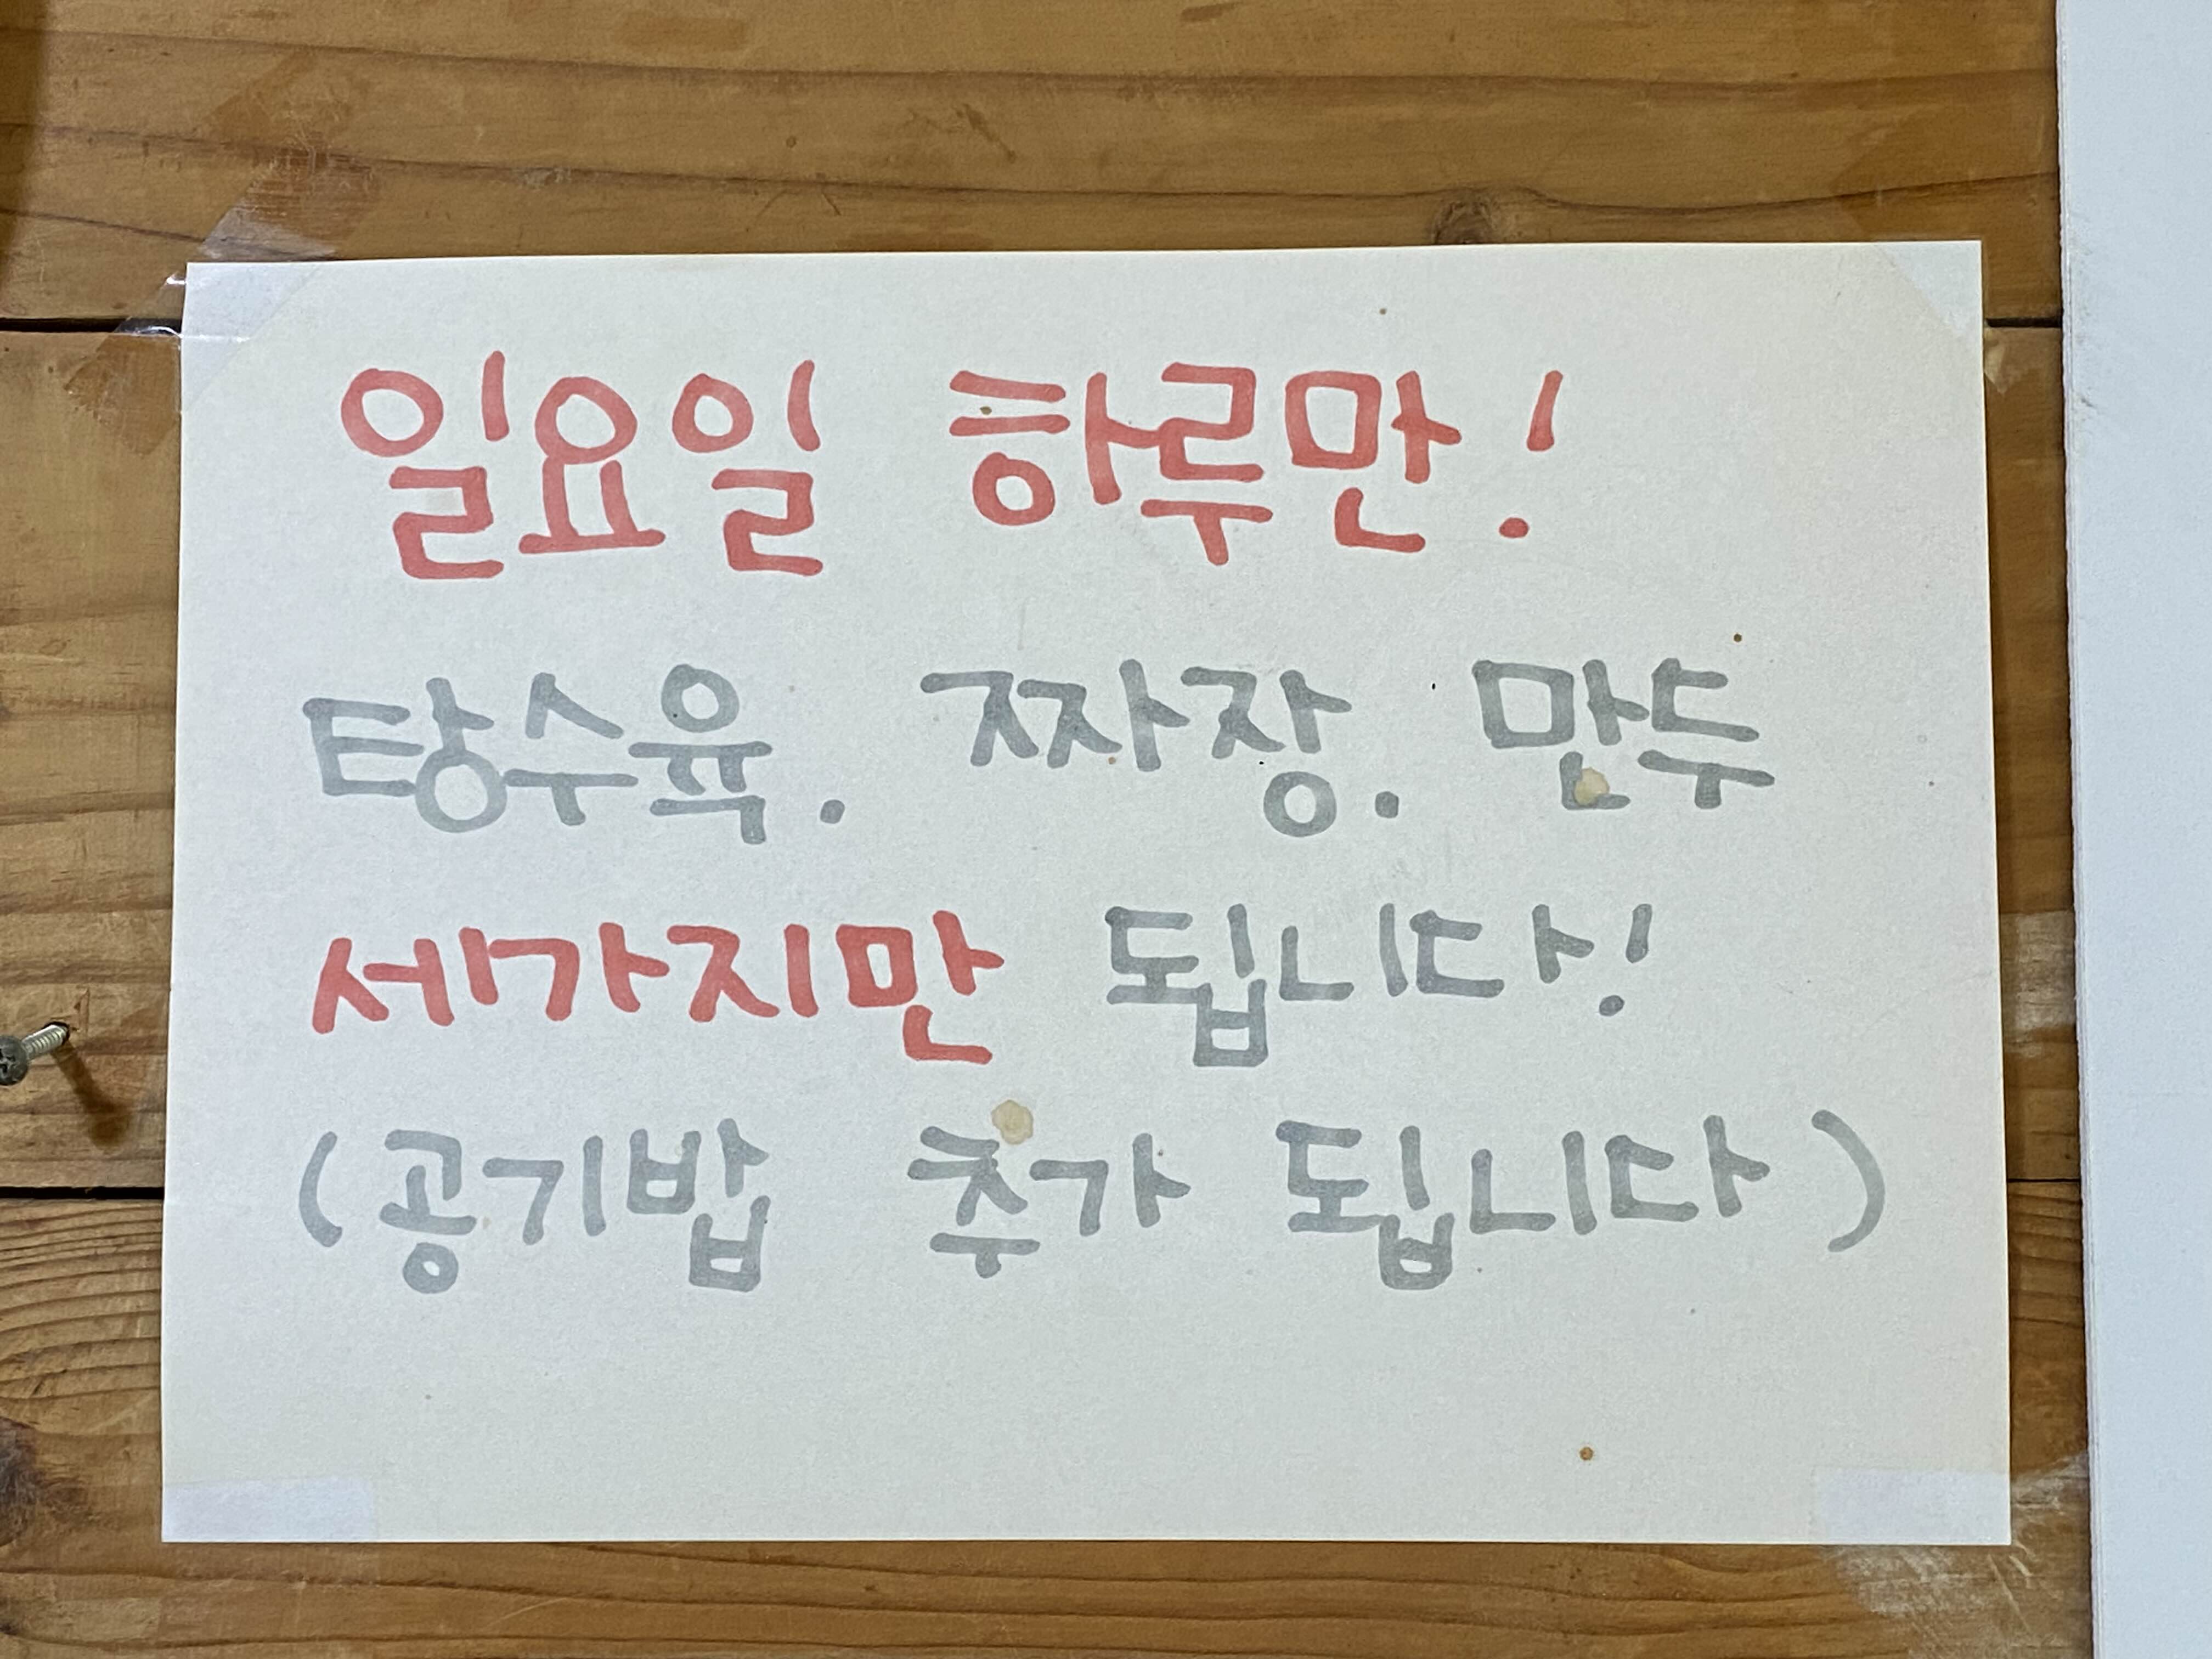 일요일 하루만!
탕수육. 짜장. 만두
세가지만 됩니다!
(공기밥 추가 됩니다)